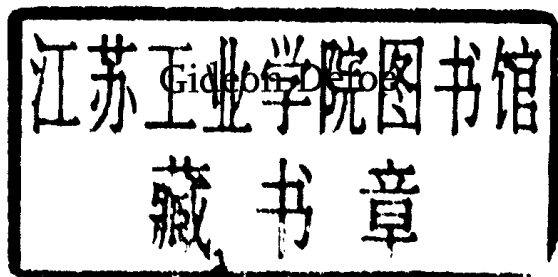 江苏工业学院图书馆
Gideon Defoe
藏书章